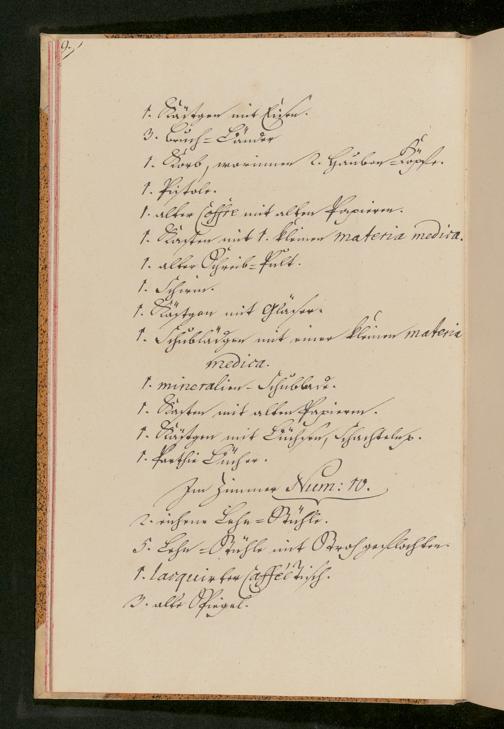 9.
1. Kästgen mit Eisen.
3. Bruch-Bänder
1. Korb, worinnen 2. Hauben-Köpfe.
1. Pistole.
1. alter Coffre mit alten Papieren.
1. Kasten mit 1. kleinen materia medica.
1. alter Schreib-Pult.
1. Schirm.
1. Kästgen mit Gläser.
1. Schublädgen mit einer kleinen materia
medica.
1. mineralien-Schublade.
1. Kasten mit alten Papieren.
1. Kästgen mit Büchsen, Schachteln p.
1. Parthie Bücher.
Im Zimmer Num: 10.
2. eichene Lehn-Stühle.
5. Lehn-Stühle mit Stroh geflochten.
1. lacquirter Caffée Tisch.
3. alte Spiegel.